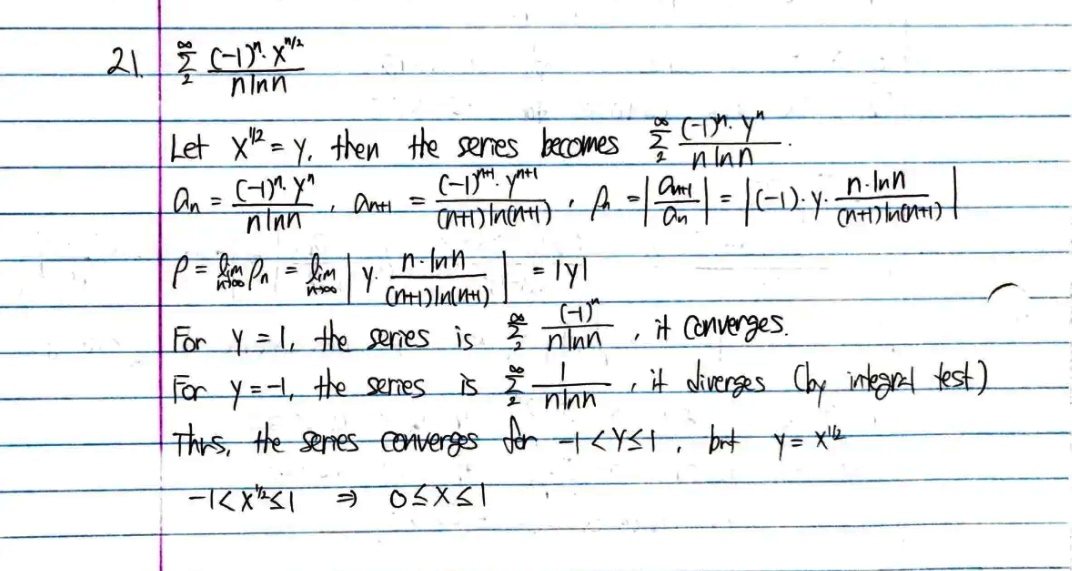 21. ∑_{2}^{∞} (-1)^n · x^{n/2} / (n ln n)
Let x^{1/2} = y, then the series becomes ∑_{2}^{∞} (-1)^n · y^n / (n ln n).
a_n = (-1)^n · y^n / (n ln n), a_{n+1} = (-1)^{n+1} · y^{n+1} / ((n+1) ln(n+1)), ρ_n = |a_{n+1} / a_n| = |(-1) · y · n · ln n / ((n+1) ln(n+1))|
ρ = lim_{n→∞} ρ_n = lim_{n→∞} |y · n · ln n / ((n+1) ln(n+1))| = |y|
For y = 1, the series is ∑_{2}^{∞} (-1)^n / (n ln n), it converges.
For y = -1, the series is ∑_{2}^{∞} 1 / (n ln n), it diverges (by integral test)
Thus, the series converges for -1 < y ≤ 1, but y = x^{1/2}
-1 < x^{1/2} ≤ 1 ⇒ 0 ≤ x ≤ 1